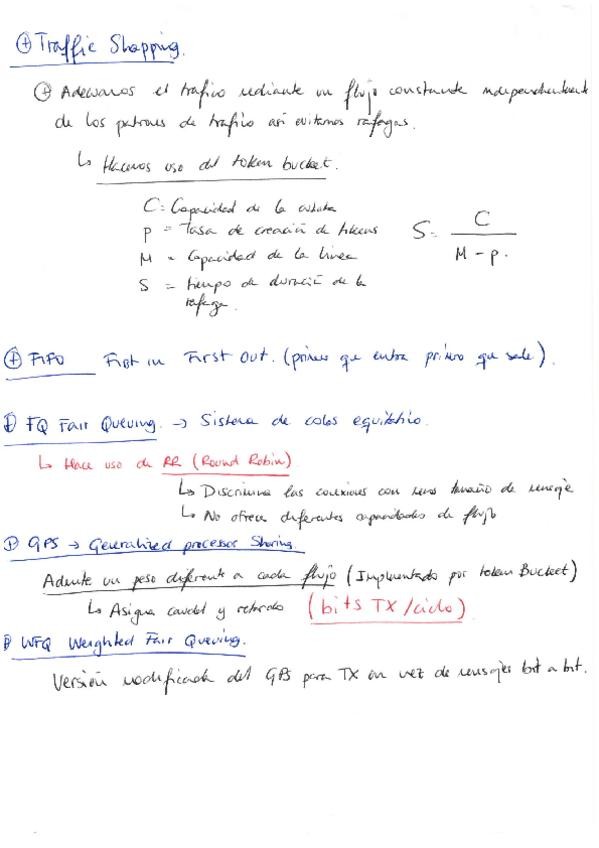 ⊕ Traffic Shapping.
⊕ Adecuamos el trafico mediante un flujo constante independientemente
de los patrones de trafico asi evitamos rafagas.
↳ Hacemos uso del token bucket.
C = Capacidad de la cubeta
p = Tasa de creación de tokens
M = Capacidad de la linea
S = tiempo de duración de la
rafaga.
S = C / M - p.
⊕ FIFO First in First Out. (primero que entra primero que sale).
⊕ FQ Fair Queuing. → Sistema de colas equitativo.
↳ Hace uso de RR (Round Robin)
↳ Discrimina las conexiones con menos tamaño de mensaje
↳ No ofrece diferentes capacidades de flujo
⊕ GPS → Generalized processor Sharing.
Admite un peso diferente a cada flujo (Implementado por token Bucket)
↳ Asigna caudal y retardo (bits TX/ciclo)
⊕ WFQ Weighted Fair Queuing.
Versión modificada del GPS para TX en vez de mensajes bit a bit.